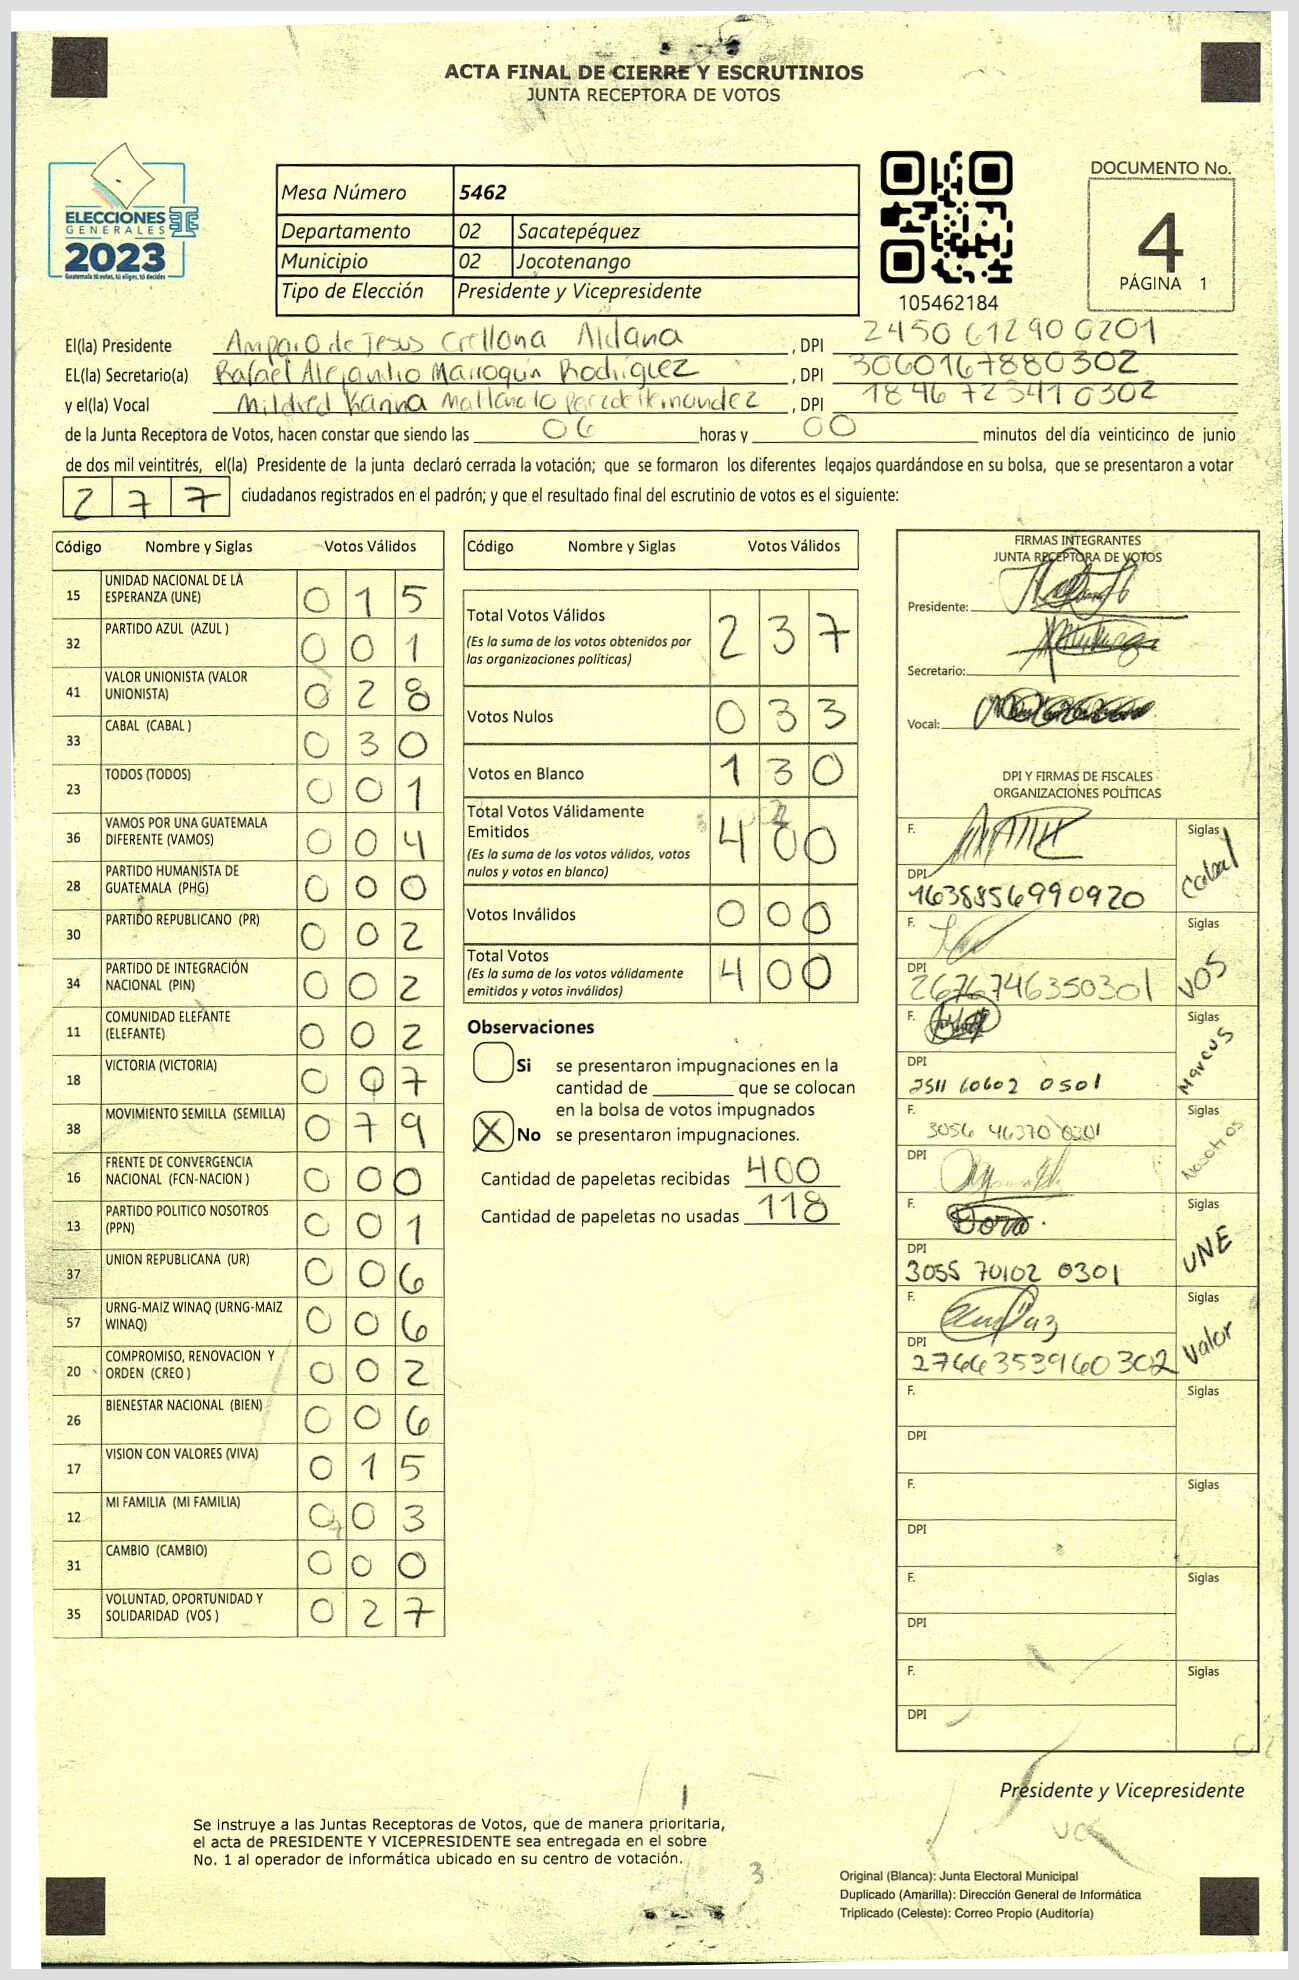 ACTA FINAL DE CIERRE Y ESCRUTINIOS
JUNTA RECEPTORA DE VOTOS
ELECCIONES
GENERALES
2023
Guatemala tú votas, tú eliges, tú decides
Mesa Número 5462
Departamento 02 Sacatepéquez
Municipio 02 Jocotenango
Tipo de Elección Presidente y Vicepresidente
105462184
DOCUMENTO No.
4
PÁGINA 1
El(la) Presidente Amparo de Jesus Orellana Aldana, DPI 2450 61290 0201
EL(la) Secretario(a) Rafael Alejandro Marroquín Rodríguez, DPI 3060167880302
y el(la) Vocal Mildred Karina, DPI 1846 72341 0302
de la Junta Receptora de Votos, hacen constar que siendo las 06 horas y 00 minutos del día veinticinco de junio
de dos mil veintitrés, el(la) Presidente de la junta declaró cerrada la votación; que se formaron los diferentes legajos guardándose en su bolsa, que se presentaron a votar
277 ciudadanos registrados en el padrón; y que el resultado final del escrutinio de votos es el siguiente:
Código Nombre y Siglas Votos Válidos
15 UNIDAD NACIONAL DE LA ESPERANZA (UNE) 015
32 PARTIDO AZUL (AZUL ) 001
41 VALOR UNIONISTA (VALOR UNIONISTA) 028
33 CABAL (CABAL ) 030
23 TODOS (TODOS) 001
36 VAMOS POR UNA GUATEMALA DIFERENTE (VAMOS) 004
28 PARTIDO HUMANISTA DE GUATEMALA (PHG) 000
30 PARTIDO REPUBLICANO (PR) 002
34 PARTIDO DE INTEGRACIÓN NACIONAL (PIN) 002
11 COMUNIDAD ELEFANTE (ELEFANTE) 002
18 VICTORIA (VICTORIA) 007
38 MOVIMIENTO SEMILLA (SEMILLA) 079
16 FRENTE DE CONVERGENCIA NACIONAL (FCN-NACION ) 000
13 PARTIDO POLITICO NOSOTROS (PPN) 001
37 UNION REPUBLICANA (UR) 006
57 URNG-MAIZ WINAQ (URNG-MAIZ WINAQ) 006
20 COMPROMISO, RENOVACION Y ORDEN (CREO ) 002
26 BIENESTAR NACIONAL (BIEN) 006
17 VISION CON VALORES (VIVA) 015
12 MI FAMILIA (MI FAMILIA) 003
31 CAMBIO (CAMBIO) 000
35 VOLUNTAD, OPORTUNIDAD Y SOLIDARIDAD (VOS ) 027
Código Nombre y Siglas Votos Válidos
Total Votos Válidos 237
(Es la suma de los votos obtenidos por
las organizaciones políticas)
Votos Nulos 033
Votos en Blanco 130
Total Votos Válidamente
Emitidos 400
(Es la suma de los votos válidos, votos
nulos y votos en blanco)
Votos Inválidos 000
Total Votos 400
(Es la suma de los votos válidamente
emitidos y votos inválidos)
Observaciones
Si se presentaron impugnaciones en la
cantidad de ________ que se colocan
en la bolsa de votos impugnados
X No se presentaron impugnaciones.
Cantidad de papeletas recibidas 400
Cantidad de papeletas no usadas 118
FIRMAS INTEGRANTES
JUNTA RECEPTORA DE VOTOS
Presidente:
Secretario:
Vocal:
DPI Y FIRMAS DE FISCALES
ORGANIZACIONES POLÍTICAS
F. Siglas Cabal
DPI 1638856990920
F. Siglas VOS
DPI 2676746350301
F. Siglas Marcus
DPI 2511 60602 0501
F. 3056 46370 0301 Siglas Nosotros
DPI
F. Siglas UNE
DPI 3055 70102 0301
F. Siglas Valor
DPI 2766353960302
F. Siglas
DPI
F. Siglas
DPI
F. Siglas
DPI
F. Siglas
DPI
Presidente y Vicepresidente
Se instruye a las Juntas Receptoras de Votos, que de manera prioritaria,
el acta de PRESIDENTE Y VICEPRESIDENTE sea entregada en el sobre
No. 1 al operador de informática ubicado en su centro de votación.
3
Original (Blanca): Junta Electoral Municipal
Duplicado (Amarilla): Dirección General de Informática
Triplicado (Celeste): Correo Propio (Auditoría)